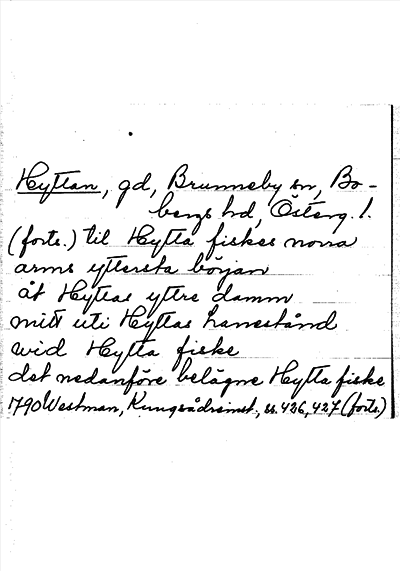 Hyttan, gd, Brunneby sn, Bo-
bergs hd, Österg. l.
(forts.) til Hytta fiskes norra
arms yttersta början
åt Hyttas yttre damm
mitt uti Hyttas hanestånd
wid Hytta fiske
det nedanföre belägne Hytta fiske
1790 Westman, Kungsådreinst., ss. 426, 427 (forts.)